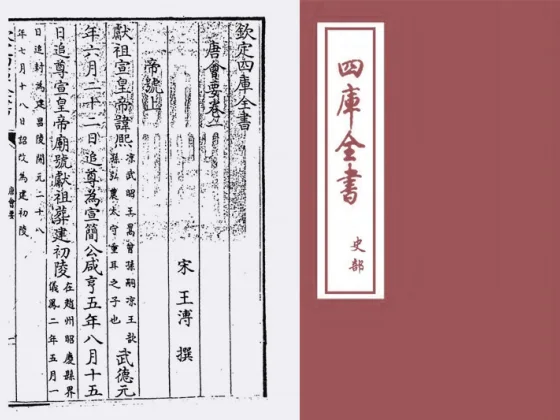 欽定四庫全書
唐會要卷一
宋 王溥 撰
帝號上
獻祖宣皇帝諱熙
涼武昭王暠曾孫嗣涼王歆
孫弘農太守重耳之子也
武德元
年六月二十二日追尊為宣簡公咸亨五年八月十五
日追尊宣皇帝廟號獻祖葬建初陵
在趙州昭慶縣界
儀鳳二年五月一
日追封為建昌陵開元二十八
年七月十八日詔改為建初陵
唐會要
四庫全書
史部